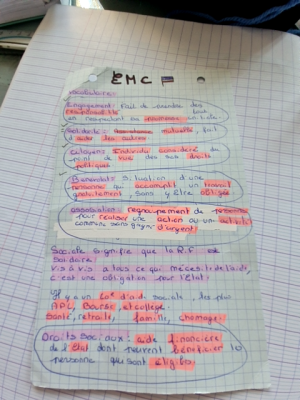 EMC
Vocabulaire:
Engagement: Fait de prendre des
responsabilités
en respectant sa promesse
Solidarité: mutuelle, fait
d'aider des autres
Citoyen: Individu considéré du
point de vue des ses droits
politiques
Bénévolat: Situation d'une
personne qui accomplit un travail
gratuitement sans y être obligée
association: regroupement de personne
pour réaliser une action ou un
commune sans gagner d'argent
Sociale signifie que la R.F est
solidaire
vis à vis a tous ce qui nécessite de l'aide,
c'est une obligation pour l'état
Il y a un sociale, des plus
APL, Bourse, et collège.
santé, retraite, famille, chomage.
Droits Sociaux: aide financière
de l'État dont peuvent bénéficier la
personne qui sont éligible